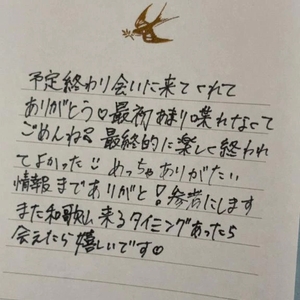 予定終わり会いに来てくれて
ありがとう♡最初あまり喋れなくて
ごめんね 最終的に楽しく終われ
てよかった めっちゃありがたい
情報までありがと!参考にします
また和歌山来るタイミングあったら
会えたら嬉しいです♡